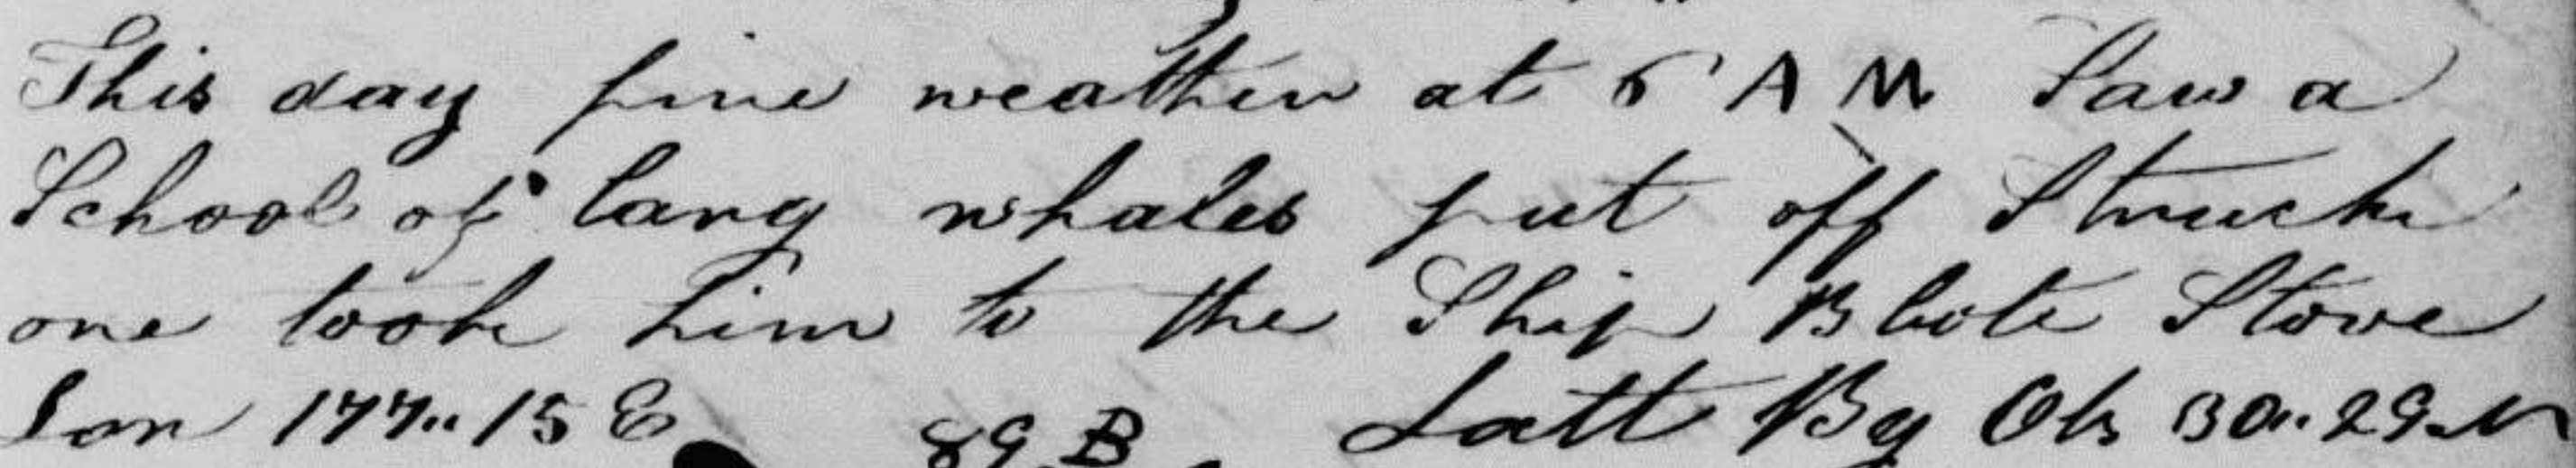 This day fine weather at 6 A M Saw a
School of larg whales put off Struck
one took him to the Ship B bote Stove
Lon 177..15 E 89 B Latt By Obs 30..29 N